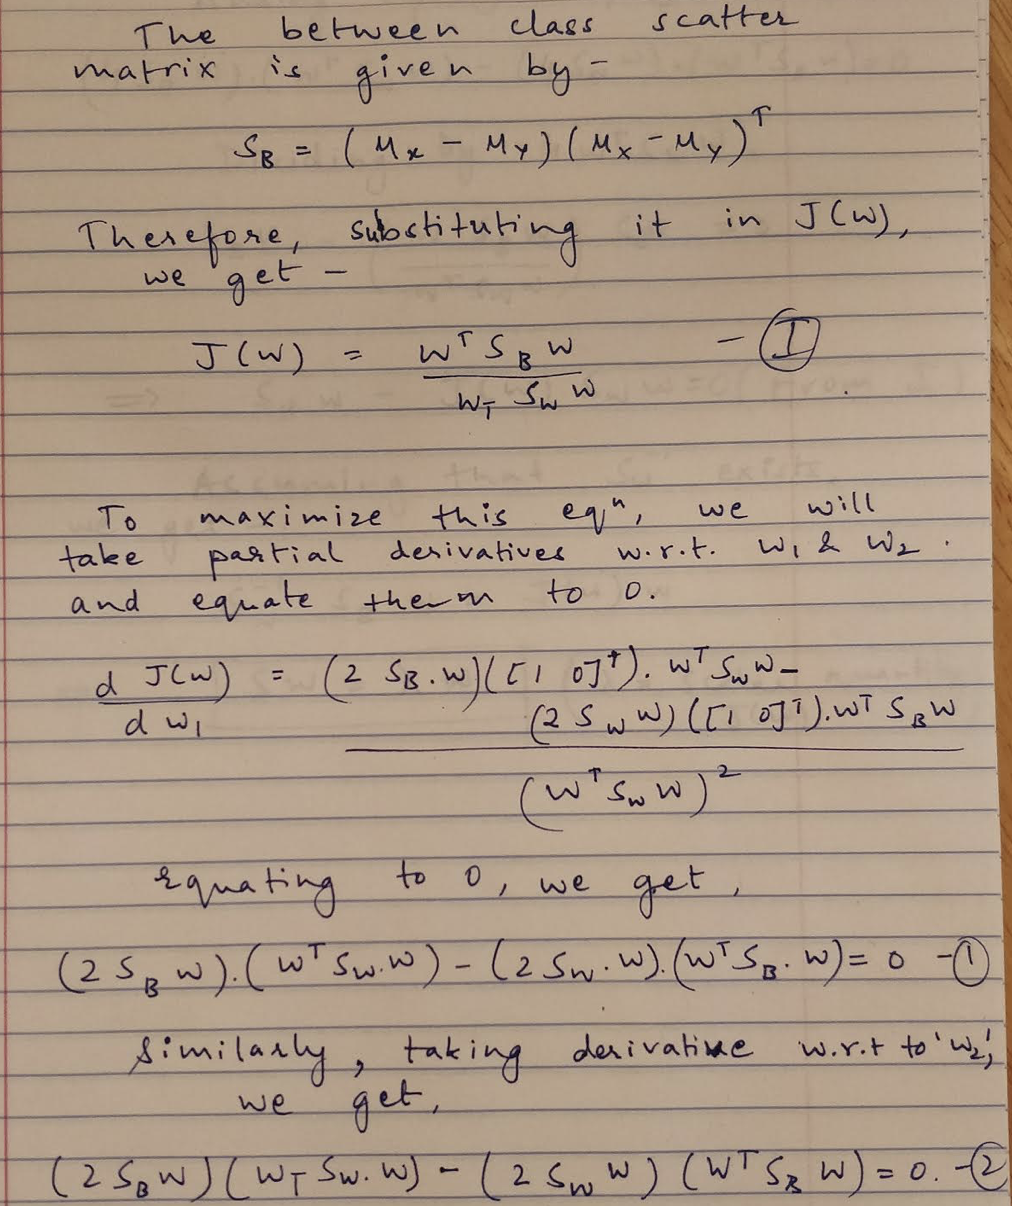 The between class scatter
matrix is given by -
S_B = (μ_x - μ_y) (μ_x - μ_y)^T
Therefore, substituting it in J(w),
we get -
J(w) = w^T S_B w / w_T S_w w - Ⓘ
To maximize this eqⁿ, we will
take partial derivatives w.r.t. w₁ & w₂.
and equate them to 0.
d J(w) / d w₁ = (2 S_B . w) ([1 0]^T) . w^T S_w w -
(2 S_w w) ([1 0]^T) . w^T S_B w
(w^T S_w w)²
Equating to 0, we get,
(2 S_B w) . (w^T S_w . w) - (2 S_w . w) . (w^T S_B . w) = 0 - ①
Similarly, taking derivative w.r.t to 'w₂',
we get,
(2 S_B w) (w_T S_w . w) - (2 S_w w) (w^T S_B w) = 0. - ②